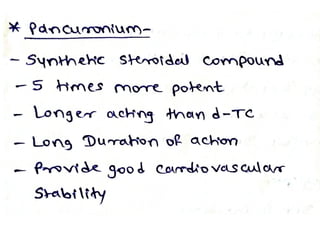 * Pancuronium-
- Synthetic Steroidal Compound
- 5 times more potent
- Longer acting than d-TC
- Long Duration of action
- Provide good cardiovascular
Stability